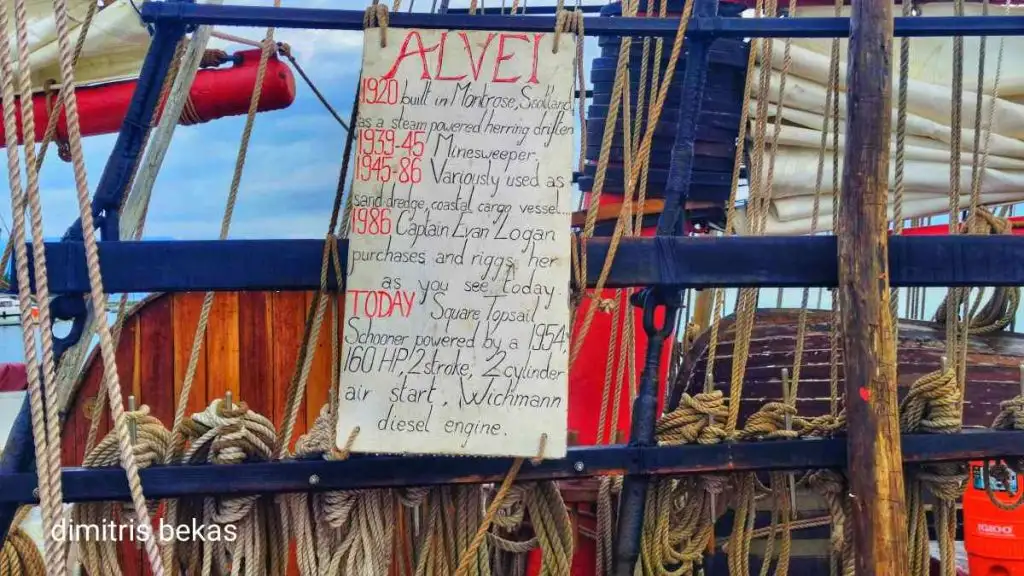 ALVEI
1920 built in Montrose, Scotland
as a steam powered herring driften
1939-45 Minesweeper
1945-86 Variously used as
sand dredge, coastal cargo vessel...
1986 Captain Evan Logan
purchases and riggs her
as you see today
TODAY Square Topsail
Schooner powered by a 1954,
160 HP, 2 stroke, 2 cylinder
air start, Wichmann
diesel engine.
IGLOO
dimitris bekas